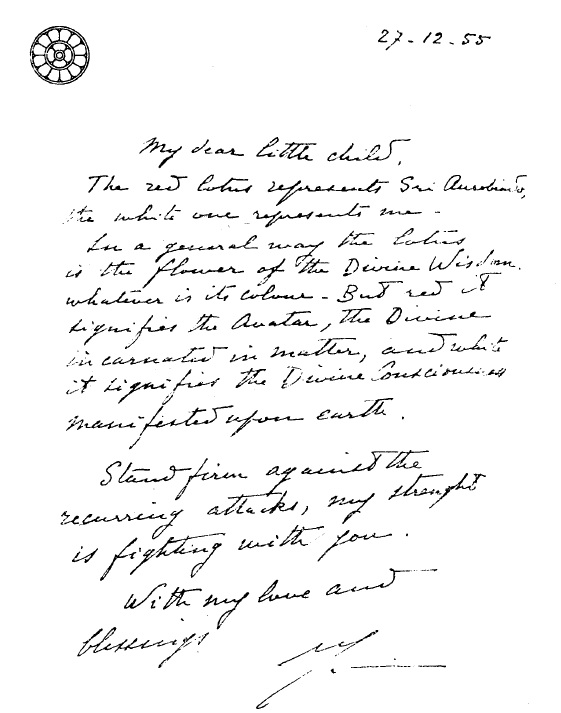 27-12-55
My dear little child,
The red lotus represents Sri Aurobindo,
the white one represents me -
In a general way the lotus
is the flower of the Divine Wisdom,
whatever is its colour - But red it
signifies the Avatar, the Divine
incarnated in matter, and white
it signifies the Divine Consciousness
manifested upon earth.
Stand firm against the
recurring attacks, my strenght
is fighting with you.
With my love and
blessings